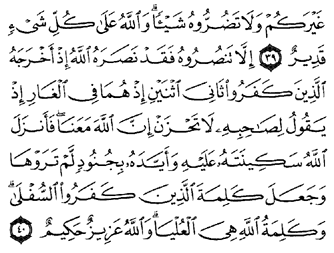 غَيْرَكُمْ وَلَا تَضُرُّوهُ شَيْـًٔا ۗ وَٱللَّهُ عَلَىٰ كُلِّ شَىْءٍ
قَدِيرٌ ﴿٣٩﴾ إِلَّا تَنصُرُوهُ فَقَدْ نَصَرَهُ ٱللَّهُ إِذْ أَخْرَجَهُ
ٱلَّذِينَ كَفَرُوا۟ ثَانِىَ ٱثْنَيْنِ إِذْ هُمَا فِى ٱلْغَارِ إِذْ
يَقُولُ لِصَـٰحِبِهِۦ لَا تَحْزَنْ إِنَّ ٱللَّهَ مَعَنَا ۖ فَأَنزَلَ
ٱللَّهُ سَكِينَتَهُۥ عَلَيْهِ وَأَيَّدَهُۥ بِجُنُودٍ لَّمْ تَرَوْهَا
وَجَعَلَ كَلِمَةَ ٱلَّذِينَ كَفَرُوا۟ ٱلسُّفْلَىٰ ۗ
وَكَلِمَةُ ٱللَّهِ هِىَ ٱلْعُلْيَا ۗ وَٱللَّهُ عَزِيزٌ حَكِيمٌ ﴿٤٠﴾